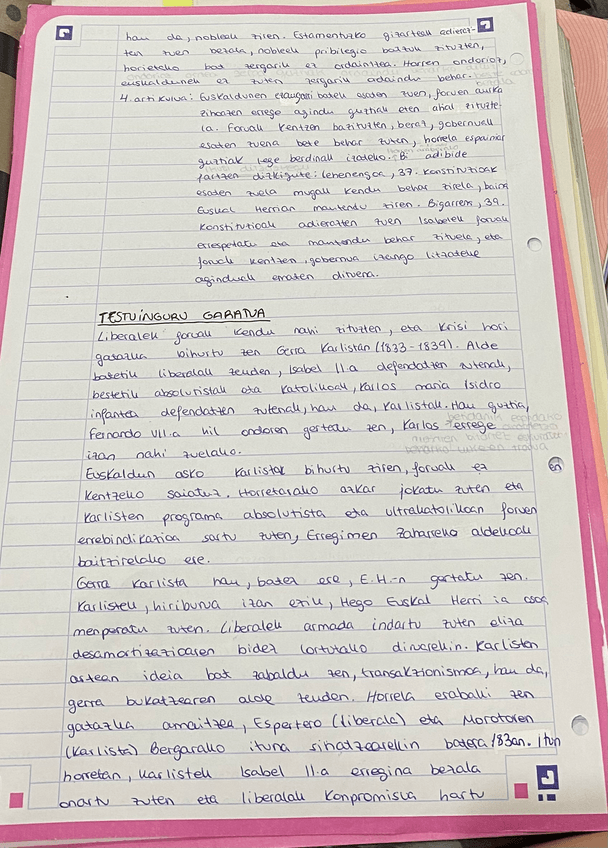 hau da, nobleak ziren. Estamentuzko gizarteak adieraz-
ten zuen bezala, nobleek pribilegio batzuk zituzten,
horietako bat zergarik ez ordaintzea. Horren ondorioz,
euskaldunek ez zuten zergarik ordaindu behar.
4. artikulua: Euskaldunen ezaugarri batek esaten zuen, foruen aurka
zihoazen errege agindu guztiak eten ahal zituzte-
la. Foruak kentzen bazituzten, beraz, gobernuak
esaten zuena bete behar zuten, horrela espainiar
guztiak lege berdinak izateko. Bi adibide
jartzen dizkigute: lehenengoa, 37. Konstituzioak
esaten zuela mugak kendu behar zirela, baina
Euskal Herrian mantendu ziren. Bigarrena, 39.
Konstituzioak adierazten zuen Isabelek foruak
errespetatu eta mantendu behar zituela, eta
foruak kentzen, gobernua izango litzateke
aginduak ematen dituena.
TESTUINGURU GARAIA
Liberalek foruak kendu nahi zituzten, eta krisi hori
gatazka bihurtu zen Gerra Karlistan (1833-1839). Alde
batetik liberalak zeuden, Isabel II.a defendatzen zutenak,
bestetik absolutistak eta katolikoak, Karlos Maria Isidro
infantea defendatzen zutenak, hau da, karlistak. Hau guztia,
Fernando VII.a hil ondoren gertatu zen, Karlos errege
izan nahi zuelako.
Euskaldun asko karlistak bihurtu ziren, foruak ez
kentzeko saiatuz. Horretarako azkar jokatu zuten eta
karlisten programa absolutista eta ultrakatolikoan foruen
errebindikazioa sartu zuten, Erregimen Zaharreko aldekoak
baitzirelako ere.
Gerra Karlista hau, batez ere, E.H.-n gertatu zen.
Karlistek, hiriburua izan ezik, Hego Euskal Herri ia osoa
menperatu zuten. Liberalek armada indartu zuten eliza
desamortizazioaren bidez lortutako diruarekin. Karlisten
artean ideia bat zabaldu zen, transakzionismoa, hau da,
gerra bukatzearen alde zeuden. Horrela erabaki zen
gatazka amaitzea, Espartero (liberala) eta Morotoren
(karlista) Bergarako ituna sinatzearekin batera 183an. Itun
horretan, karlistek Isabel II.a erregina bezala
onartu zuten eta liberalak konpromisua hartu